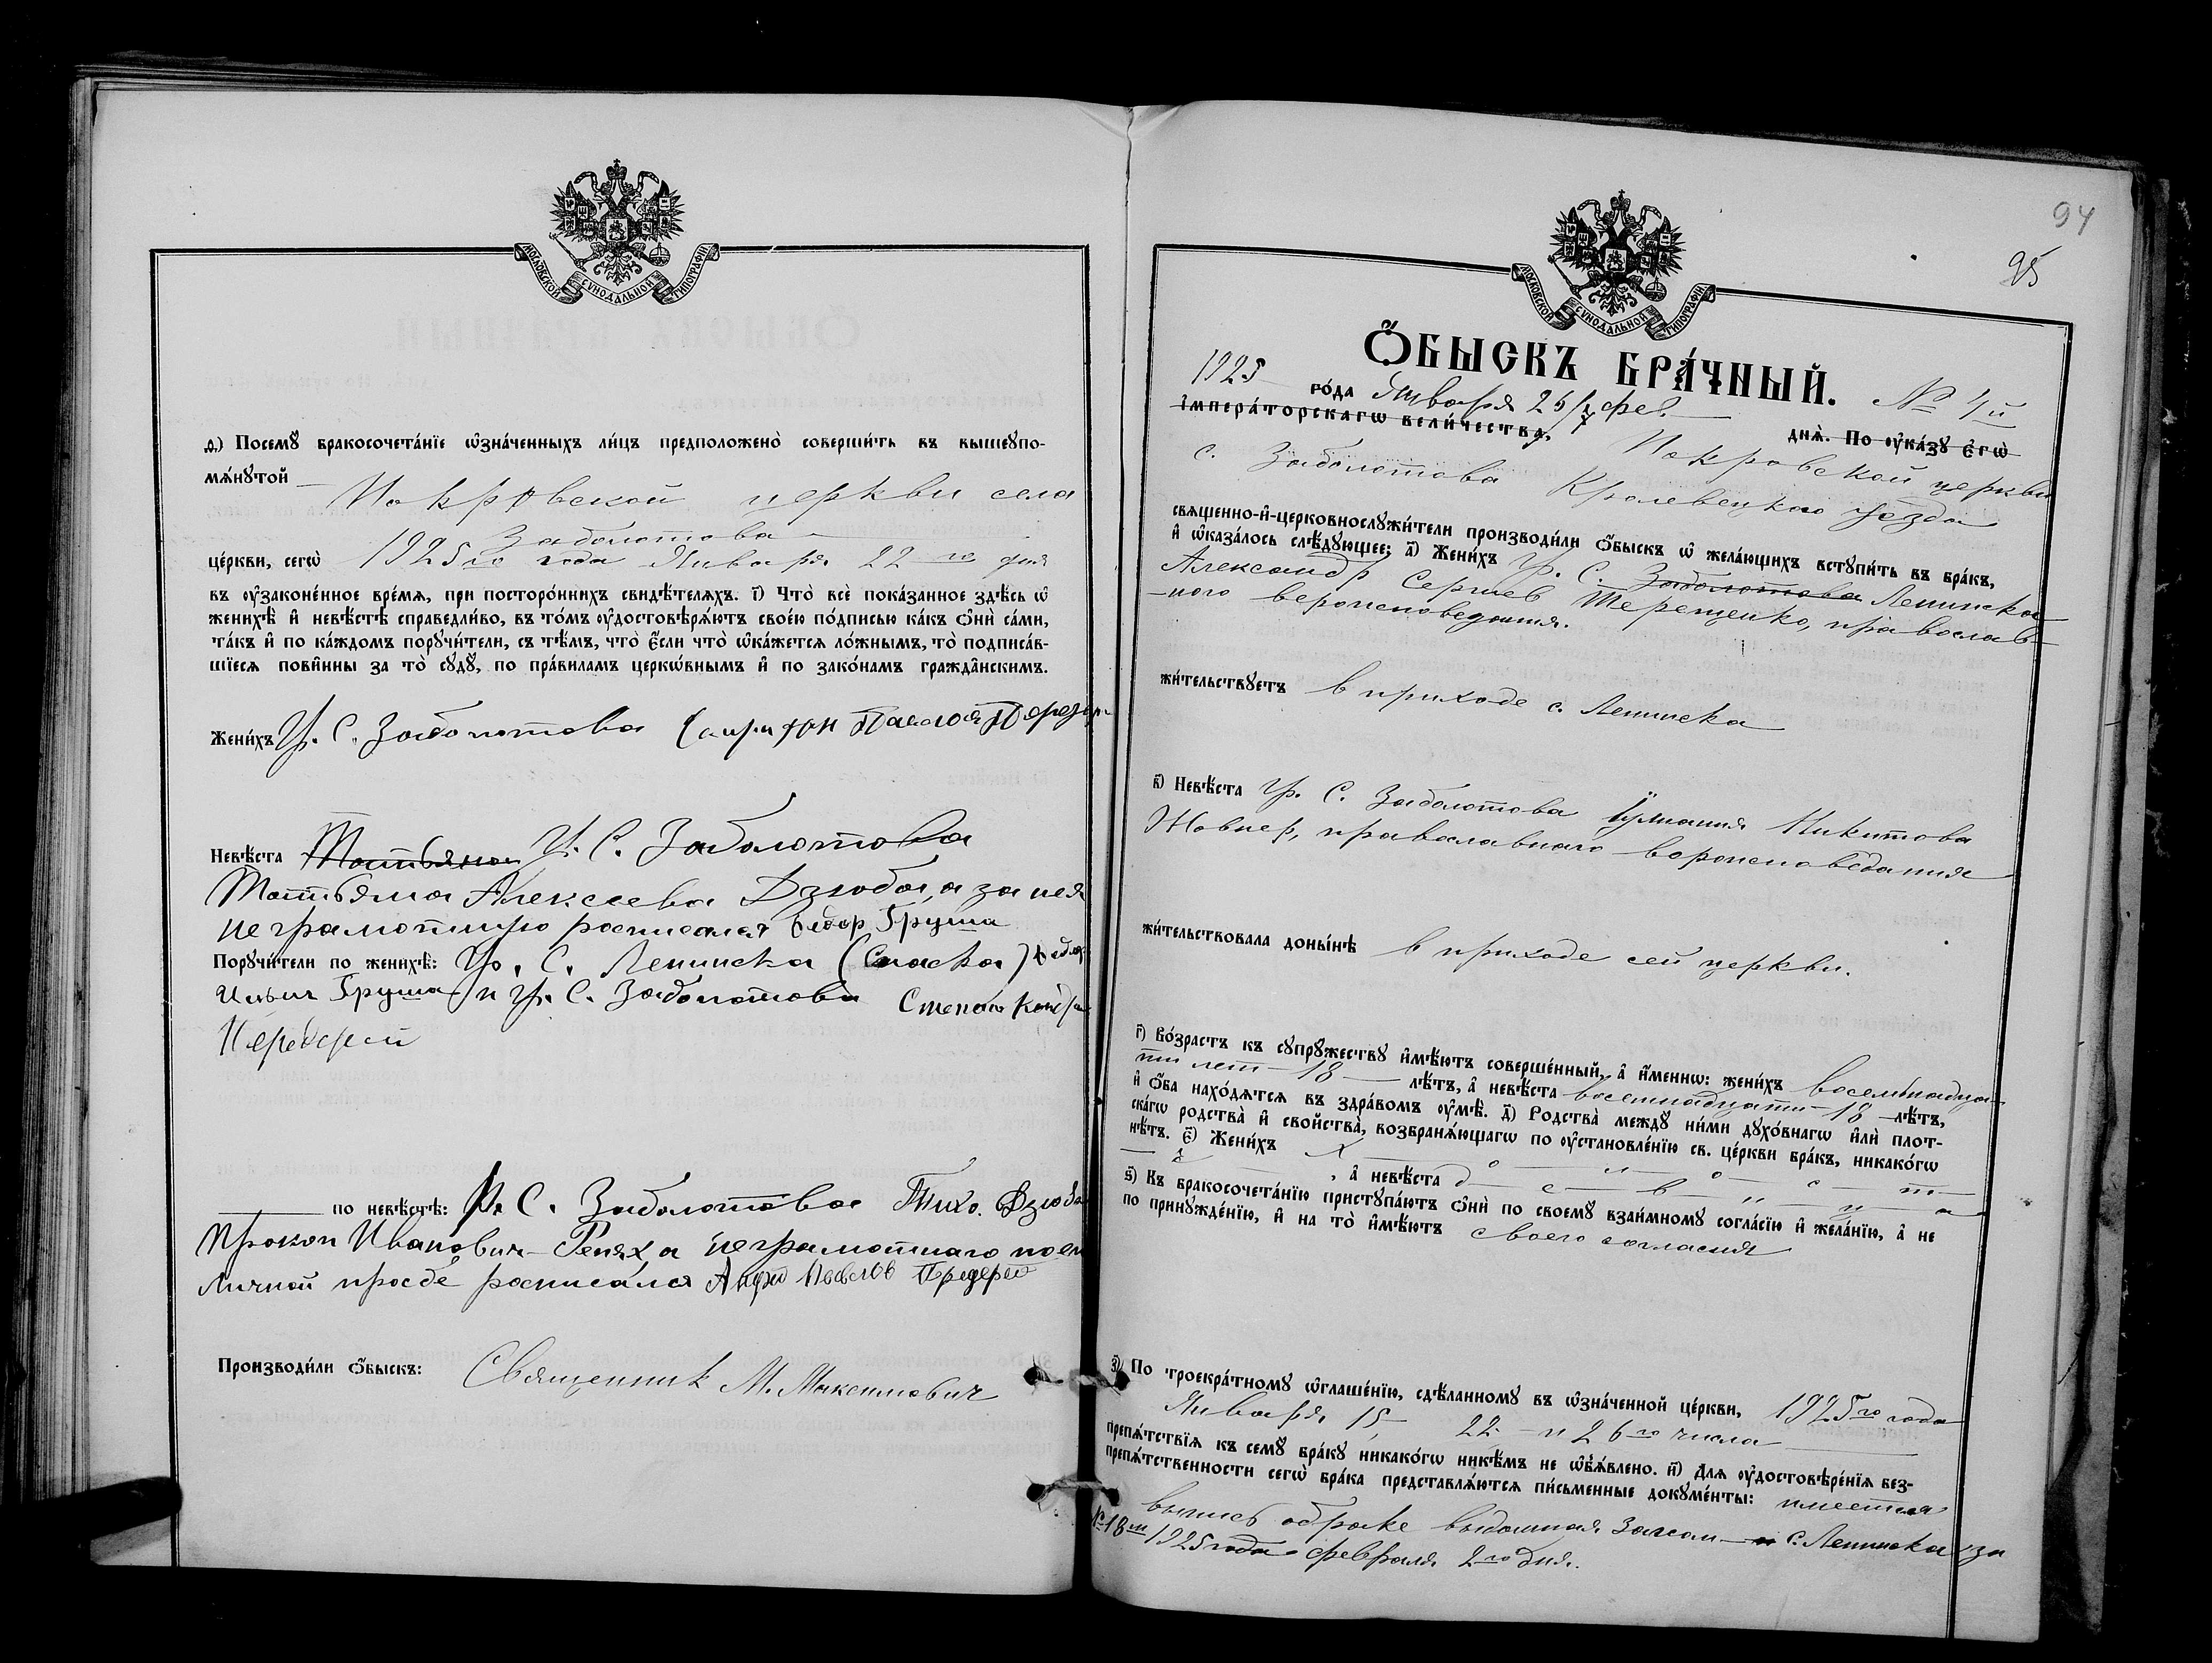 МОСКОВСКОЙ СУНОДАЛЬНОЙ ТИПОГРАФІИ
д҃.) Посемꙋ бракосочета́нїе ѡ҆зна́ченныхъ ли́цъ предположено̀ соверши́ть въ вышеꙋпо-
мѧ́нꙋтой
Покровской церкви села
Заболотова
це́ркви, сегѡ̀ 1925 го года Января 22 го дня
въ ᲂу҆зако́ненное вре́мѧ, при посторо́ннихъ свидѣ́телѧхъ. і҃) Что̀ всѐ пока́занное здѣ́сь ѡ҆
женихѣ̀ и҆ невѣ́стѣ справедли́во, въ то́мъ ᲂу҆достовѣрѧ́ютъ свое́ю по́дписью ка́къ ѻ҆нѝ са́ми,
та́къ и҆ по ка́ждомъ порꙋчи́тели, съ тѣ́мъ, что̀ є҆́сли что̀ ѡ҆ка́жетсѧ ло́жнымъ, то̀ подписа́в-
шїесѧ пови́нны за то̀ сꙋдꙋ̀, по пра́виламъ церкѡ́внымъ и҆ по зако́намъ гражда́нскимъ.
Жени́хъ Гр. С. Заболотова
Невѣ́ста Татьяна Гр. С. Заболотова
Татьяна Алексеева Дзюба, а за нея
неграмотную росписался Федор Груша
Порꙋчи́тели по женихѣ̀: Гр. С. Ленинска (Спаска) Федор
Ильич Груша и гр. С. Заболотова Степан
по невѣ́стѣ: Гр. С. Заболотова Тихо. Дзюба
Прокоп Иванович Репях а неграмотнаго по ег
личной прозбе росписался
Производи́ли ѻ҆́быскъ: Священник М. Максимович
94
95
МОСКОВСКОЙ СУНОДАЛЬНОЙ ТИПОГРАФІИ
Ѻ҆́БЫСКЪ БРА́ЧНЫЙ.
1925 го́да Января 26/ фев. № 4й
дня̀. По ᲂу҆ка́зꙋ є҆гѡ̀
І҆мпера́торскагѡ вели́чества, Покровской церкви
с. Заболотова Кролевецкаго уезда
свѧще́нно-и҆-церковнослꙋжи́тели производи́ли ѻ҆́быскъ ѡ҆ жела́ющихъ встꙋпи́ть въ бра́къ,
и҆ ѡ҆каза́лось слѣ́дꙋющее: а҃) Жени́хъ Гр. С. Заболотова Ленинска
Александр Сергиев Терещенко, православ-
ного вероисповедания.
жи́тельствꙋетъ в приходе с. Ленинска
в҃) Невѣ́ста Гр. С. Заболотова Иулиания Никитова
Жовнер, православнаго вероисповедания
жи́тельствовала доны́нѣ в приходе сей церкви.
г҃) Во́зрастъ къ сꙋпрꙋ́жествꙋ и҆мѣ́ютъ соверше́нный, а҆ и҆́меннѡ: жени́хъ восемнадца-
ти лет 18 лѣ́тъ, а҆ невѣ́ста восемнадцати 18 лѣ́тъ,
и҆ ѻ҆́ба нахо́дѧтсѧ въ здра́вомъ ᲂу҆мѣ̀. д҃) Родства̀ междꙋ̀ ни́ми дꙋхо́внагѡ и҆лѝ плот-
ска́гѡ родства̀ и҆ свойства̀, возбранѧ́ющагѡ по ᲂу҆становле́нїю св. це́ркви бра́къ, никако́гѡ
нѣ́тъ. є҃) Жени́хъ х о л о с т
, а҆ невѣ́ста д е в и ц а
ѕ҃) Къ бракосочета́нїю пристꙋпа́ютъ ѻ҆нѝ по своемꙋ̀ взаи́мномꙋ согла́сїю и҆ жела́нїю, а҆ не
по принꙋжде́нїю, и҆ на то̀ и҆мѣ́ютъ своего согласия
з҃) По троекра́тномꙋ ѡ҆глаше́нїю, сдѣ́ланномꙋ въ ѡ҆зна́ченной це́ркви, 1925 го года
Января 15 22 и 26 го числа
препѧ́тствїѧ къ семꙋ̀ бра́кꙋ никако́гѡ никѣ́мъ не ѡ҆б̾ѧ́влено. и҃) Для ᲂу҆достовѣре́нїѧ без-
препѧ́тственности сегѡ̀ бра́ка представлѧ́ютсѧ пи́сьменные докꙋме́нты: имеется
выпись о браке выданная Загсом с. Ленинска за
№ 18 м 1925 года февраля 2 го дня.